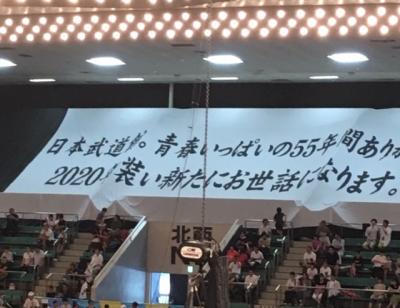 日本武道館。青春いっぱいの55年間あり
2020年装い新たにお世話になります。
北西